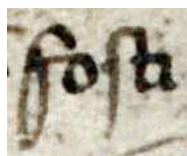 foſti